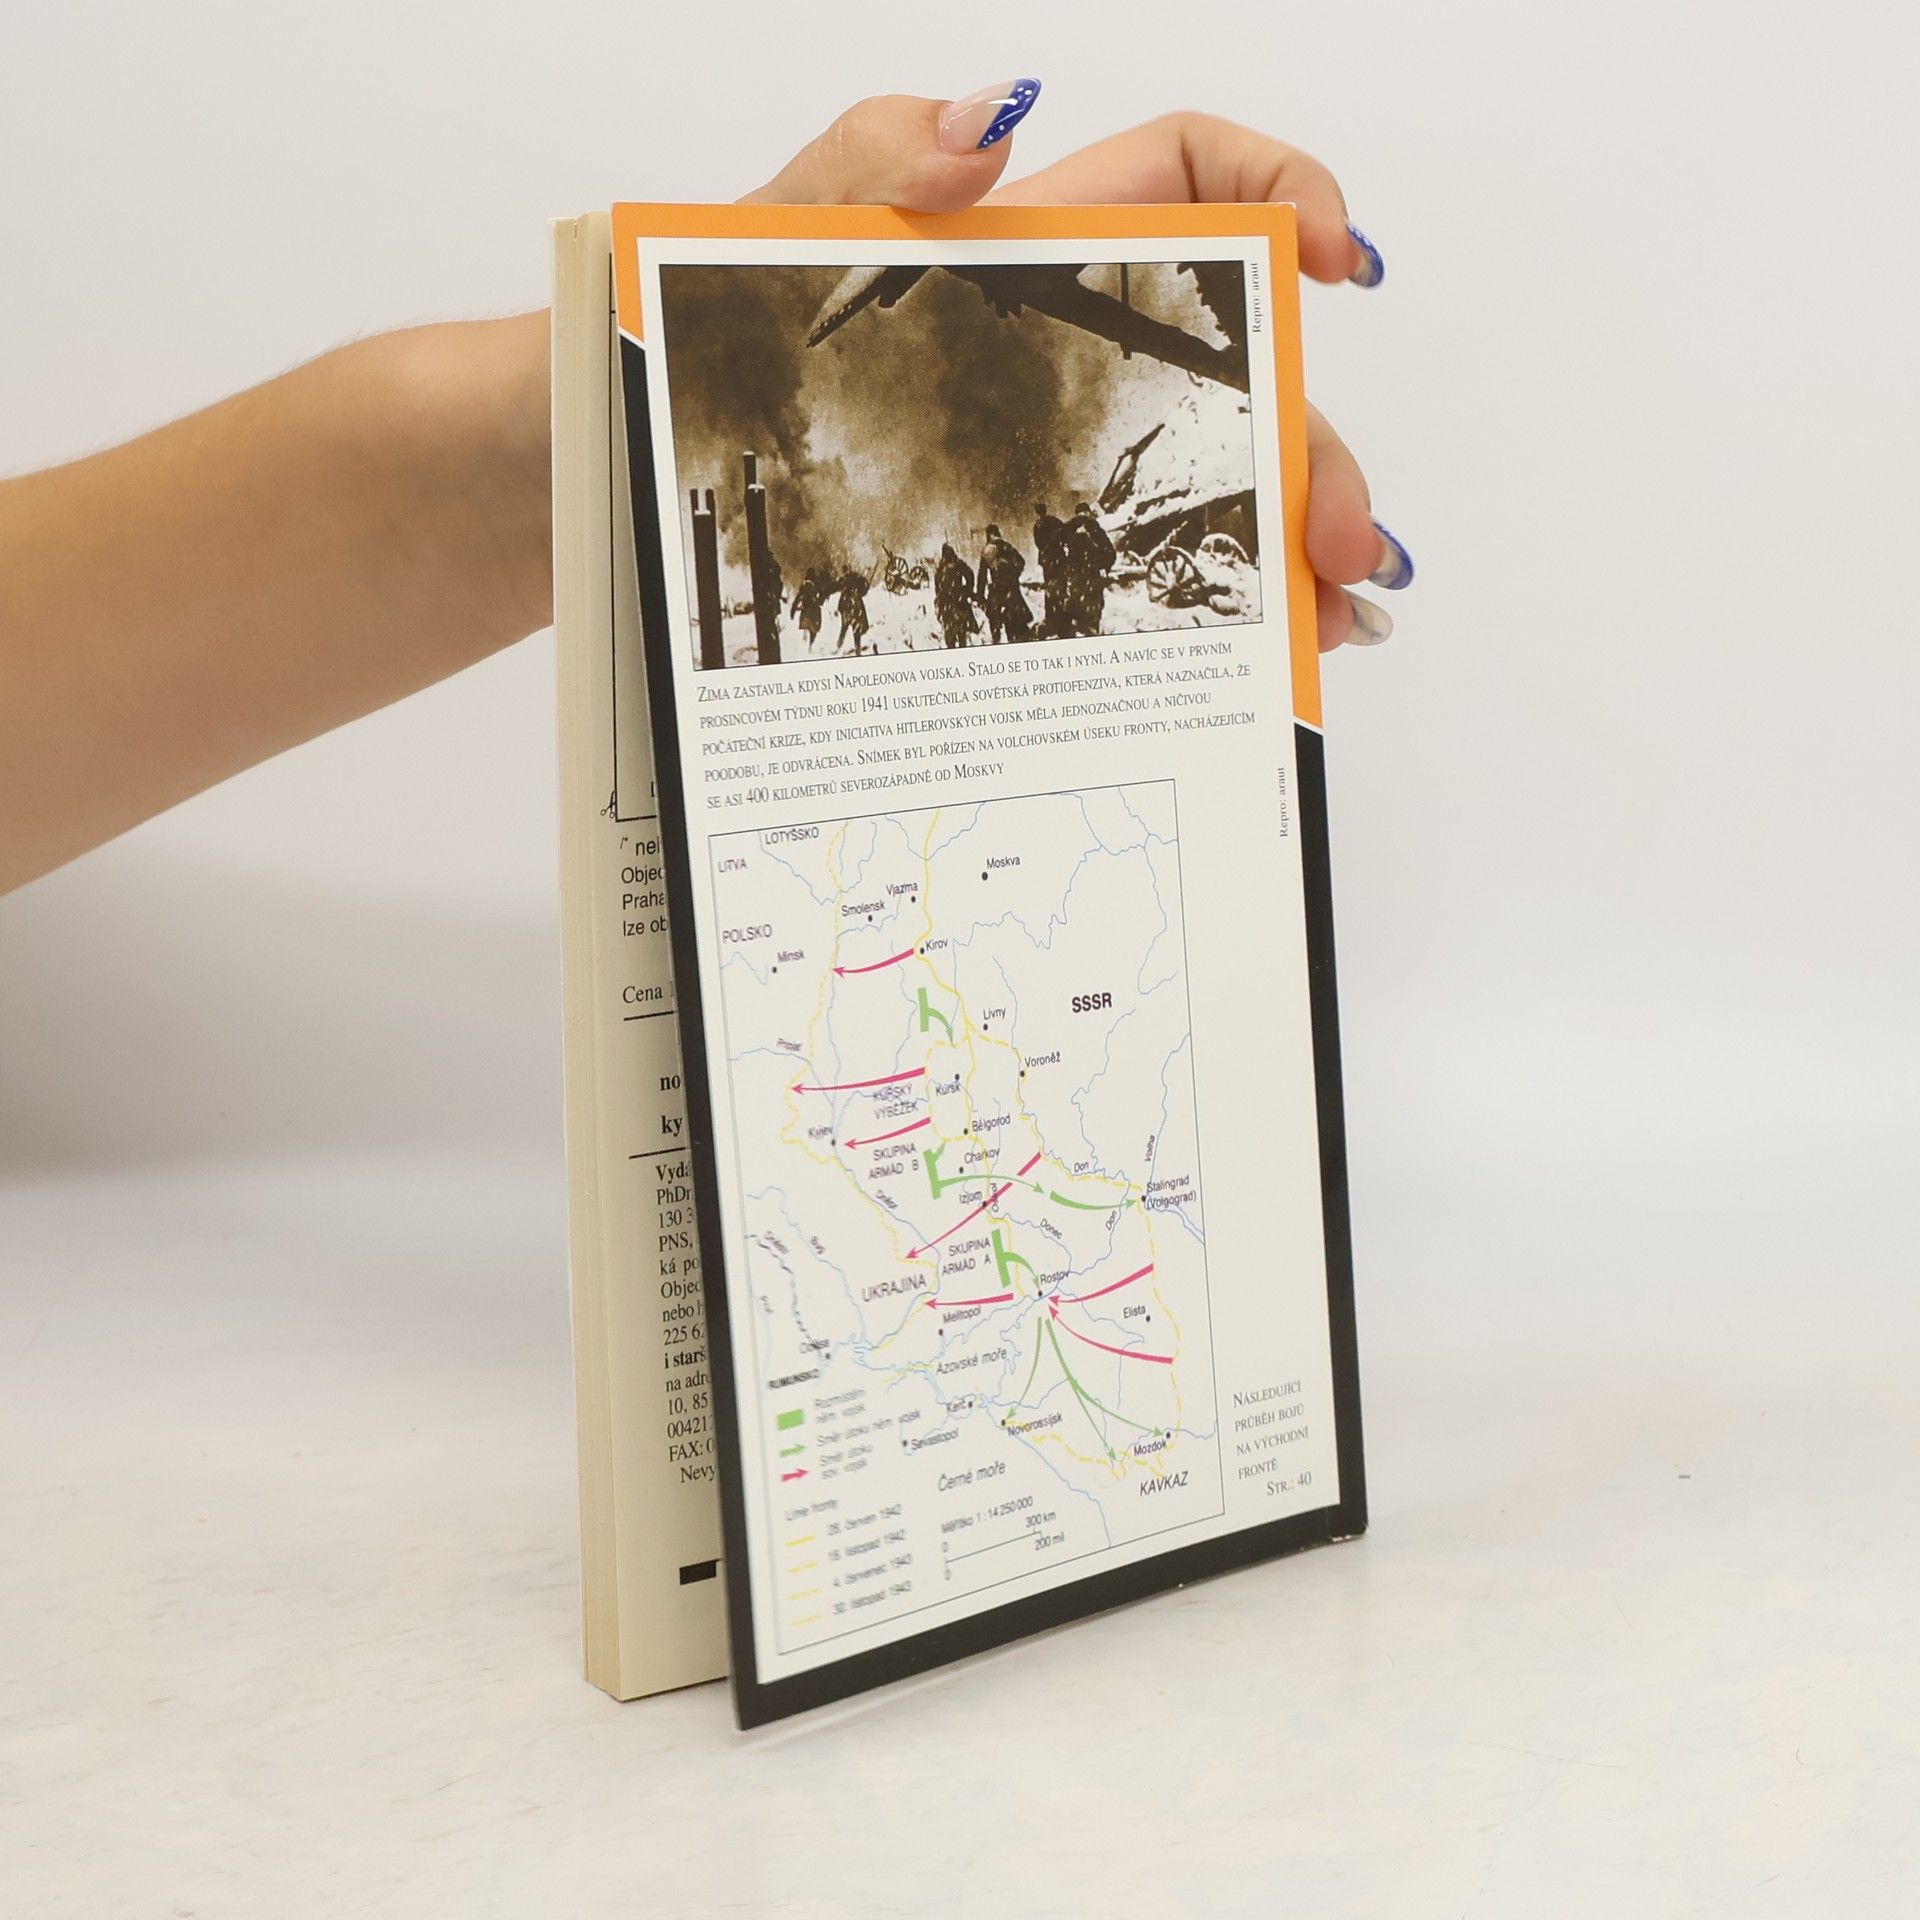 Repro: araut
Zima zastavila kdysi Napoleonova vojska. Stalo se to tak i nyní. A navíc se v prvním
prosincovém týdnu roku 1941 uskutečnila sovětská protiofenziva, která naznačila, že
počáteční krize, kdy iniciativa hitlerovských vojsk měla jednoznačnou a ničivou
poodobu, je odvrácena. Snímek byl pořízen na volchovském úseku fronty, nacházejícím
se asi 400 kilometrů severozápadně od Moskvy
Repro: araut
LOTYŠSKO
LITVA
Moskva
Vjazma
Smolensk
POLSKO
Kirov
Minsk
SSSR
Livny
Pripjať
Voroněž
KURSKÝ
VÝBĚŽEK
Kursk
Kyjev
Bělgorod
SKUPINA
ARMÁD B
Charkov
Don
Volha
Stalingrad
(Volgograd)
Izjum
Doněc
Don
SKUPINA
ARMÁD A
UKRAJINA
Rostov
Melitopol
Elista
Azovské moře
RUMUNSKO
Kerč
Novorossijsk
Sevastopol
Mozdok
Černé moře
KAVKAZ
Rozmístění
něm. vojsk
Směr útoku něm. vojsk
Směr útoku
sov. vojsk
Linie fronty
28. červen 1942
18. listopad 1942
4. červenec 1943
30. listopad 1943
Měřítko 1 : 14 250 000
0 300 km
0 200 mil
Následující
průběh bojů
na východní
frontě
Str.: 40
/* neh
Objed
Praha
lze ob
Cena
no
ky
Vydá
PhDr
130 3
PNS,
ká po
Objed
nebo h
225 62
i starš
na adre
10, 85
00421
FAX: 0
Nevy